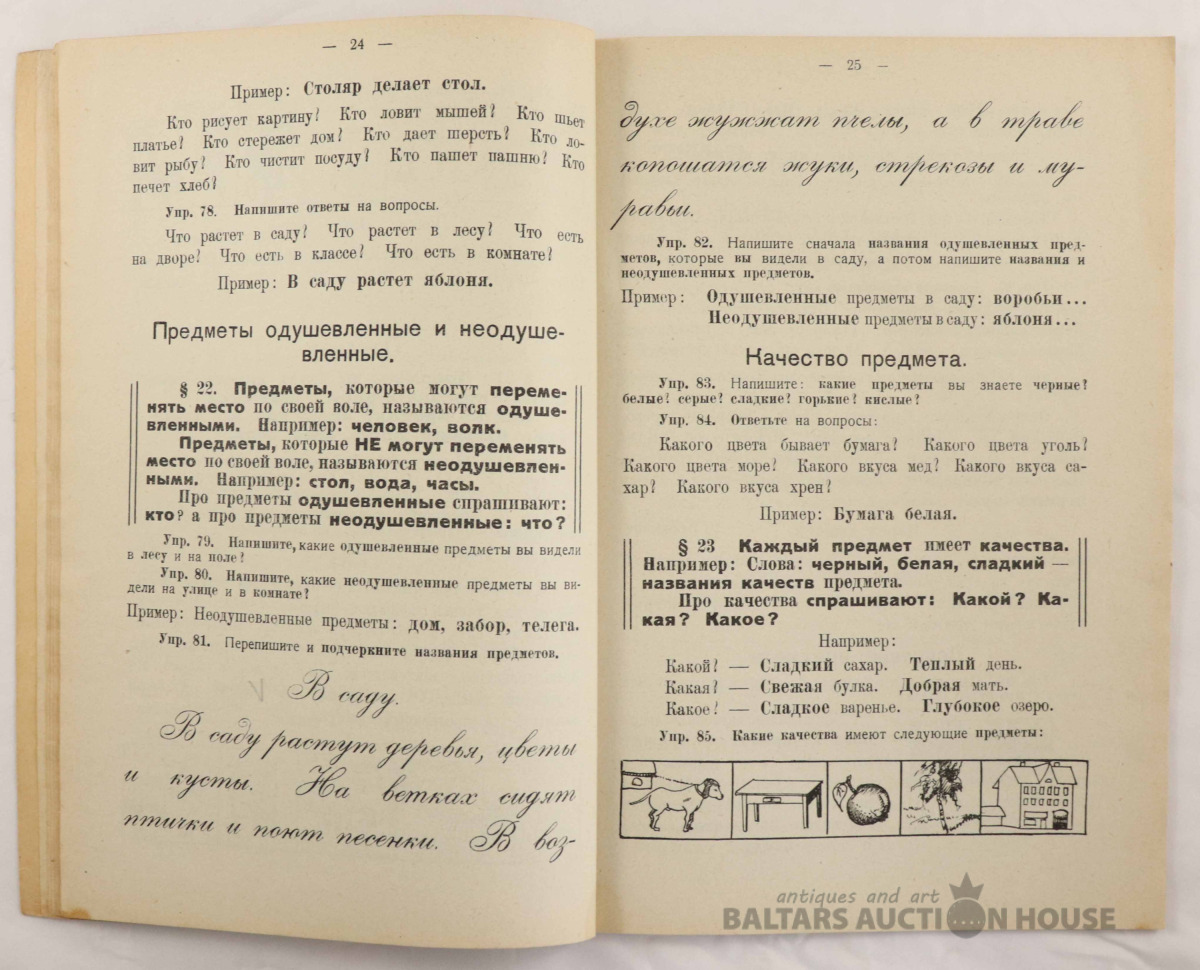 — 24 —
Пример: Столяр делает стол.
Кто рисует картину? Кто ловит мышей? Кто шьет
платье? Кто стережет дом? Кто дает шерсть? Кто ло-
вит рыбу? Кто чистит посуду? Кто пашет пашню? Кто
печет хлеб?
Упр. 78. Напишите ответы на вопросы.
Что растет в саду? Что растет в лесу? Что есть
на дворе? Что есть в классе? Что есть в комнате?
Пример: В саду растет яблоня.
Предметы одушевленные и неодуше-
вленные.
§ 22. Предметы, которые могут переме-
нять место по своей воле, называются одуше-
вленными. Например: человек, волк.
Предметы, которые НЕ могут переменять
место по своей воле, называются неодушевлен-
ными. Например: стол, вода, часы.
Про предметы одушевленные спрашивают:
кто? а про предметы неодушевленные: что?
Упр. 79. Напишите, какие одушевленные предметы вы видели
в лесу и на поле?
Упр. 80. Напишите, какие неодушевленные предметы вы ви-
дели на улице и в комнате?
Пример: Неодушевленные предметы: дом, забор, телега.
Упр. 81. Перепишите и подчеркните названия предметов.
В саду.
В саду растут деревья, цветы
и кусты. На ветках сидят
птички и поют песенки. В воз-
— 25 —
духе жужжат пчелы, а в траве
копошатся жуки, стрекозы и му-
равьи.
Упр. 82. Напишите сначала названия одушевленных пред-
метов, которые вы видели в саду, а потом напишите названия и
неодушевленных предметов.
Пример: Одушевленные предметы в саду: воробьи...
Неодушевленные предметы в саду: яблоня...
Качество предмета.
Упр. 83. Напишите: какие предметы вы знаете черные?
белые? серые? сладкие? горькие? кислые?
Упр. 84. Ответьте на вопросы:
Какого цвета бывает бумага? Какого цвета уголь?
Какого цвета море? Какого вкуса мед? Какого вкуса са-
хар? Какого вкуса хрен?
Пример: Бумага белая.
§ 23 Каждый предмет имеет качества.
Например: Слова: черный, белая, сладкий —
названия качеств предмета.
Про качества спрашивают: Какой? Ка-
кая? Какое?
Например:
Какой? — Сладкий сахар. Теплый день.
Какая? — Свежая булка. Добрая мать.
Какое? — Сладкое варенье. Глубокое озеро.
Упр. 85. Какие качества имеют следующие предметы:
antiques and art
BALTARS AUCTION HOUSE